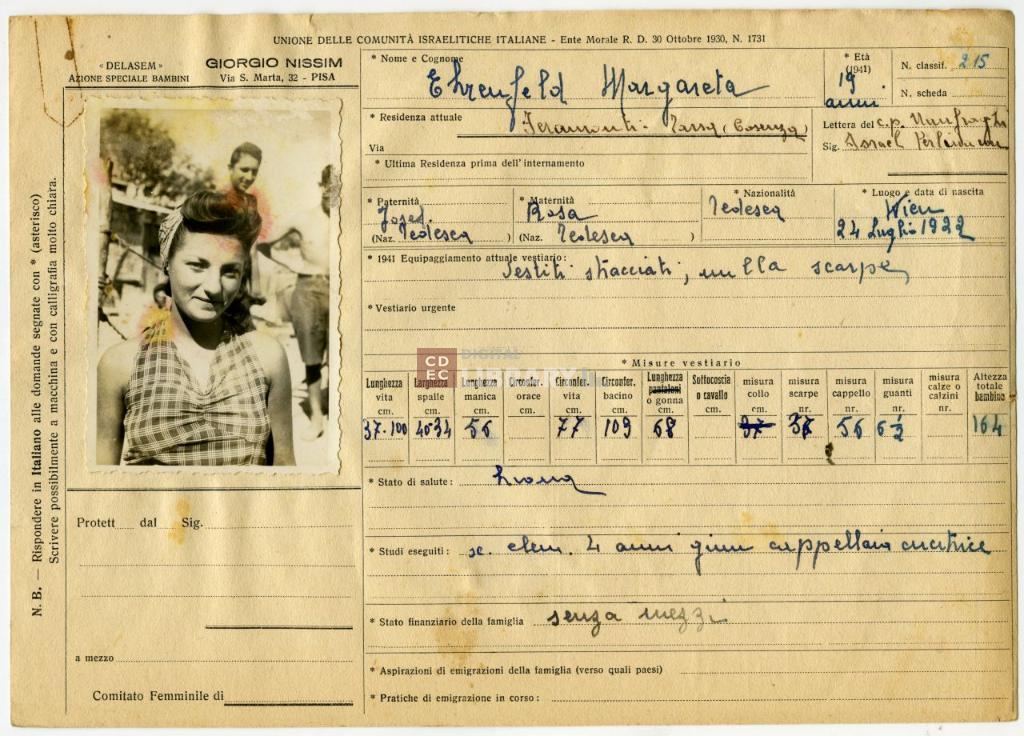 UNIONE DELLE COMUNITÀ ISRAELITICHE ITALIANE - Ente Morale R. D. 30 Ottobre 1930, N. 1731
« DELASEM »
AZIONE SPECIALE BAMBINI
GIORGIO NISSIM
Via S. Marta, 32 - PISA
* Nome e Cognome Ehrenfeld Margareta
* Età (1941) 19 anni
N. classif. 215
N. scheda
* Residenza attuale Feramonti - Tarsia (Cosenza)
Via
Lettera del c.p. Naufraghi
Sig. Israel
* Ultima Residenza prima dell'internamento
* Paternità Josef.
(Naz. Tedesca )
* Maternità Rosa
(Naz. Tedesca )
* Nazionalità
Tedesca
* Luogo e data di nascita
Wien
24 Luglio 1922
* 1941 Equipaggiamento attuale vestiario: Vestiti stracciati, nulla scarpe,
* Vestiario urgente
* Misure vestiario
Lunghezza vita cm. 37-100
Larghezza spalle cm. 40-34
Lunghezza manica cm. 56
Circonfer. orace cm.
Circonfer. vita cm. 77
Circonfer. bacino cm. 109
Lunghezza pantaloni o gonna cm. 68
Sottocoscia o cavallo cm.
misura collo cm. 37
misura scarpe nr. 37
misura cappello nr. 56
misura guanti nr. 6½
misura calze o calzini nr.
Altezza totale bambino 164
* Stato di salute: buona
* Studi eseguiti: sc. elem. 4 anni ginn cappellaia cucitrice
* Stato finanziario della famiglia senza mezzi
* Aspirazioni di emigrazioni della famiglia (verso quali paesi)
* Pratiche di emigrazione in corso:
Protett dal Sig.
a mezzo
Comitato Femminile di
N. B. — Rispondere in Italiano alle domande segnate con * (asterisco)
Scrivere possibilmente a macchina e con calligrafia molto chiara.
CDEC DIGITAL LIBRARY.it